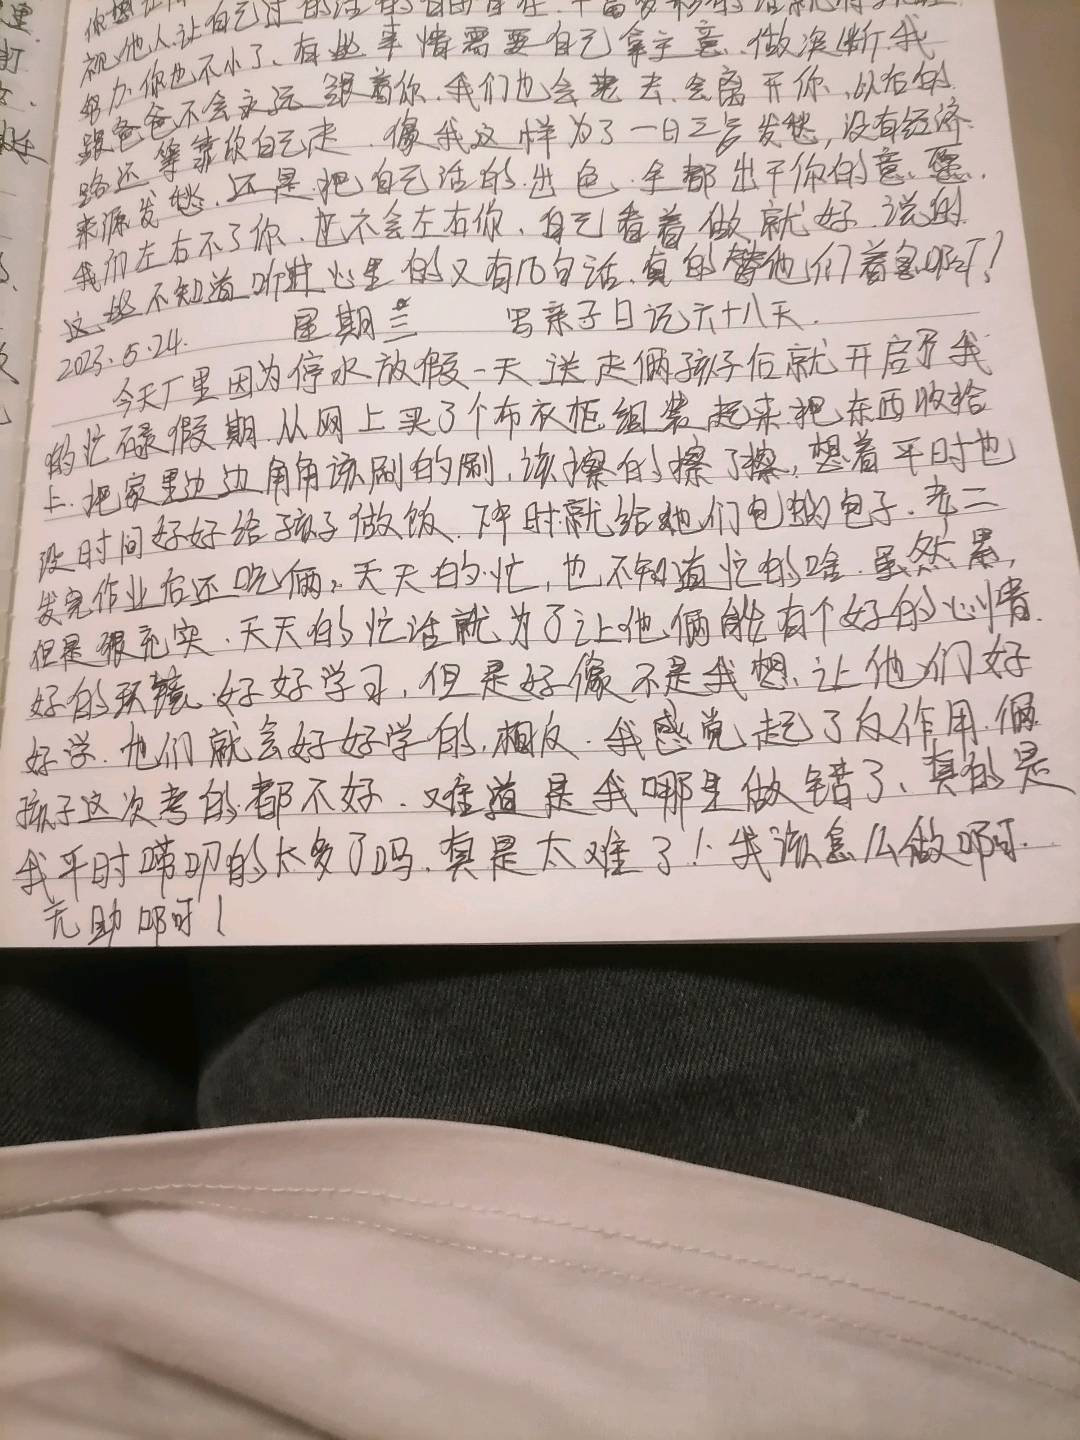 视他人.让自己过的活的自由自在.
努力.你也不小了、有些事情需要自己拿主意.做决断.我
跟爸爸不会永远跟着你.我们也会老去.会离开你.以后的
路还等靠你自己走.像我这样为了一日三餐发愁,没有经济
来源发愁.还是把自己活的出色.全都出于你的意愿.
我们左右不了你.也不会左右你.自己看着做就好.说的
这些不知道听进心里的又有几句话.真的替他们着急啊!
2023.5.24. 星期三 写亲子日记六十八天.
今天厂里因为停水放假一天送走俩孩子后就开启了我
的忙碌假期.从网上买了个布衣柜组装起来把东西收拾
上.把家里边边角角该刷的刷.该擦的擦了擦,想着平时也
没时间好好给孩子做饭.下午时就给她们包的包子.老二
发完作业后还吃俩,天天的忙,也不知道忙的啥.虽然累,
但是很充实.天天的忙活就为了让他俩能有个好的心情.
好的环境.好好学习,但是好像不是我想.让他们好
好学.他们就会好好学的.相反.我感觉起了反作用.俩
孩子这次考的都不好.难道是我哪里做错了、真的是
我平时唠叨的太多了吗.真是太难了!我该怎么做啊.
无助啊!